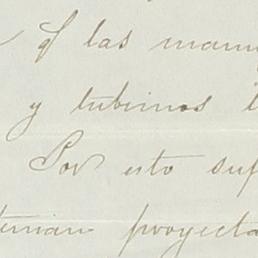 y las mam
y tubimos
Por esto sup
tenian proyecta